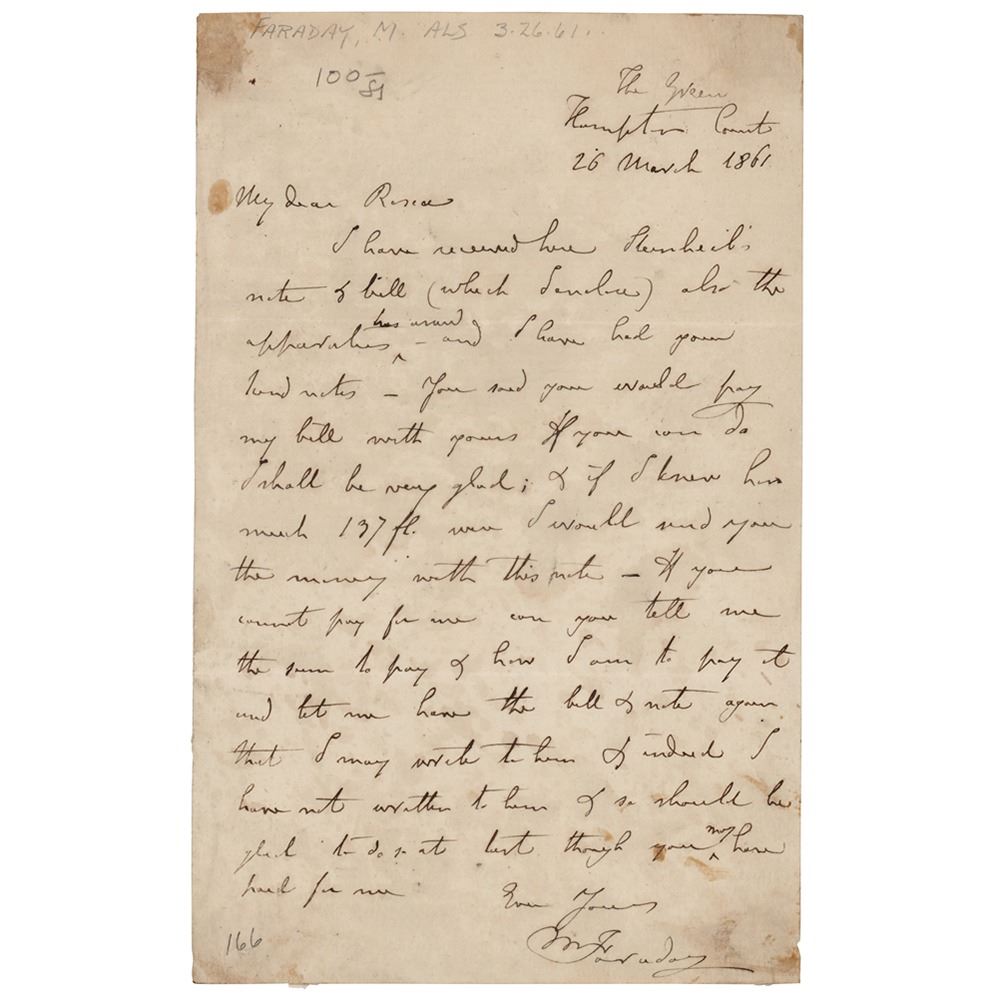 FARADAY, M. ALS 3.26.61.
100-
The Green
Hampton Court
26 March 1861
My dear Roscoe
I have received here Steinheil's
note & bill (which I enclose) also the
has arrived
apparatus ^ - and I have had your
kind notes - You said you would pay
my bill with yours If you can do
I shall be very glad; & if I knew how
much 137 fl. were I would send you
the money with this note - If you
cannot pay for me can you tell me
the sum to pay & how I am to pay it
and let me have the bill & note again
that I may write to him & indeed I
have not written to him & so should be
may
glad to do so at last though you ^ have
paid for me
Ever Yours
M Faraday
166